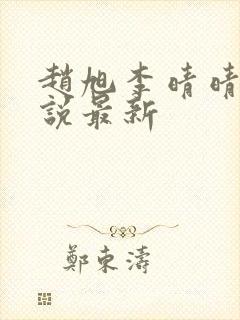 趙旭李晴晴
說最新
鄭東濤